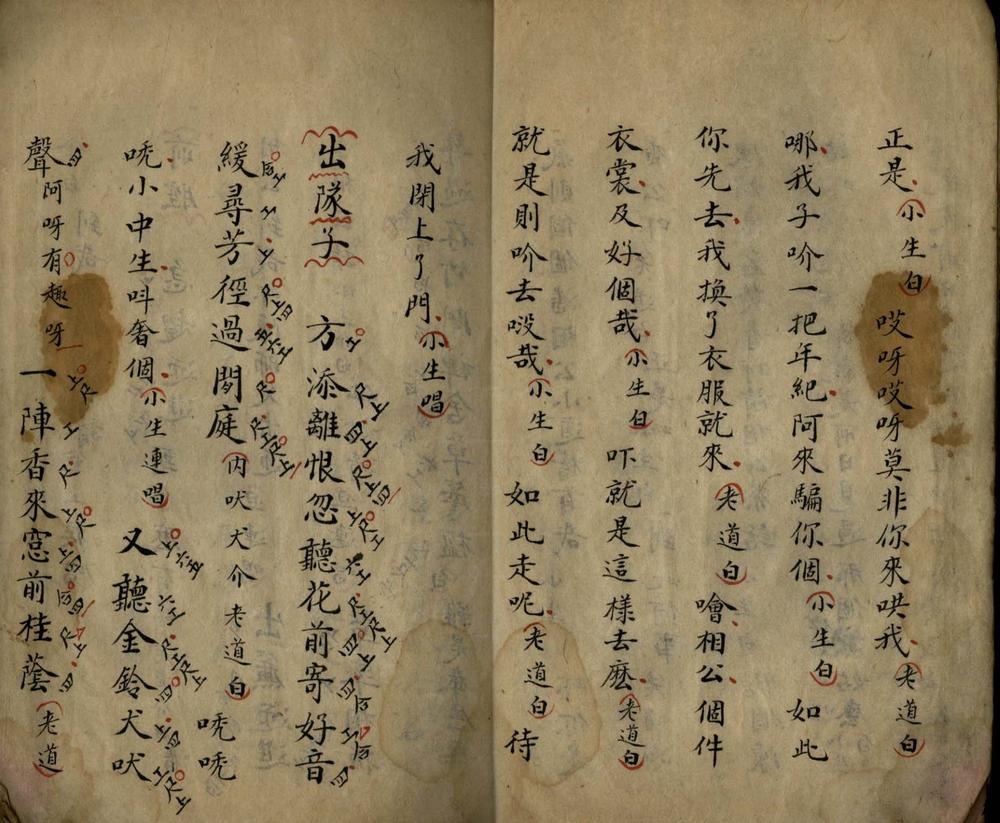 正是小生白哎呀哎呀莫非你來哄我老道白
哪我子吤一把年紀阿來騙你個小生白如此
你先去我換了衣服就來老道白噲相公個件
衣裳及好個哉小生白吓就是這樣去麽老道白
就是則吤去哉小生白如此走呢老道白待
我閉上了門小生唱
出隊子方添離恨忽聽花前寄好音
緩尋芳徑過閒庭内吠犬介老道白唬唬
唬小中生呌奢個小生連唱又聽金鈴犬吠
聲阿呀有趣呀一陣香來窓前桂蔭老道